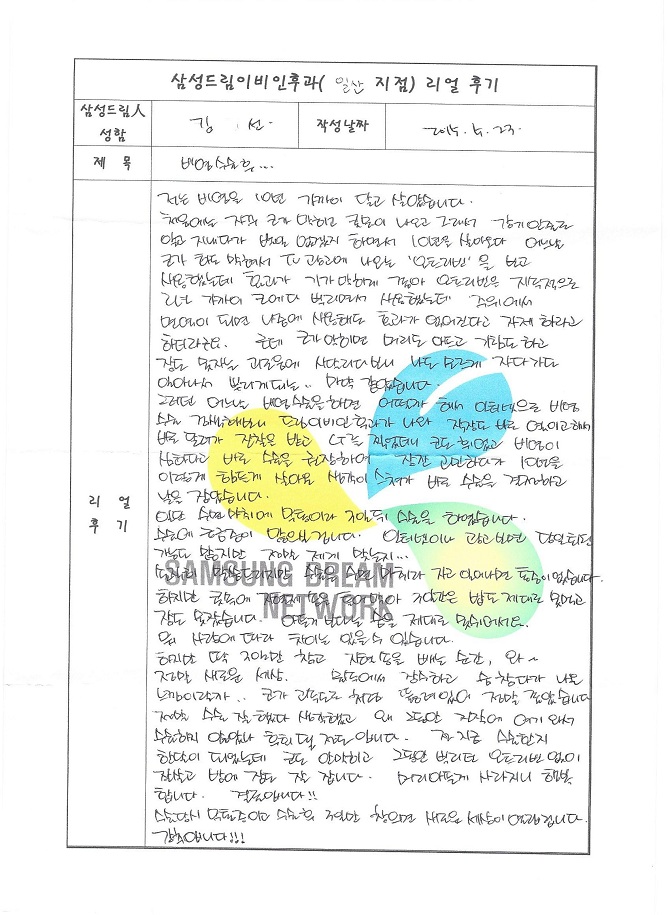 삼성드림이비인후과( 일산 지점) 리얼 후기
삼성드림人 성함
김 선
작성날짜
제 목
비염수술후...
리 얼 후 기
저는 비염을 10년 가까이 달고 살았습니다.
처음에는 자꾸 코가 막히고 콧물이 나오고 그래서 감기인줄로
알고 지내다가 별일 없겠지 하면서 10년을 살아오다 어느날
코가 하도 막혀서 TV 광고에 나오는 '오트리빈' 을 보고
사용했는데 효과가 기가막히게 좋아 오트리빈을 지속적으로
2년 가까이 코에다 뿌리면서 사용했는데 주위에서
면역이 되면 나중에 사용해도 효과가 없어진다고 자제 하라고
하더라구요. 근데 코가 막히면 머리도 아프고 갑갑도 하고
잠도 못자는 괴로움에 시달리다보니 나도 모르게 자다가도
일어나서 뿌리게되는.. 마약 같았습니다.
그러던 어느날 비염수술을 하면 어떨까 해서 인터넷으로 비염
수술 검색해보니 드림이비인후과가 나와 직장도 바로 옆이고해서
바로 달려가 진찰을 받고 CT를 찍었더니 코도 휘었고 비염이
심하다고 바로 수술을 권장하여 잠깐 고민하다가 10년을
이렇게 힘들게 살아온 생각이 스쳐가 바로 수술을 결정하고
날을 잡았습니다.
일단 수면마취에 무통이라 저도 수술을 하였습니다.
수술에 궁금증이 많으실겁니다. 인터넷이나 광고보면 당일퇴원
개념도 맞지만 정말 제게 맞는지...
솔직히 말씀드리지만 수술은 수면 마취라 자고 일어나면 통증이 없습니다.
하지만 콧속에 지혈제 솜을 틀어막아 3일간은 밥도 제대로 못먹고
잠도 못잤습니다. 이틀기 보다는 숨을 제대로 못쉬어서요.
뭐 사람에 따라 차이는 있을 수 있습니다.
하지만 딱 3일만 참고 지혈 솜을 빼는 순간, 와~
정말 새로운 세상. 물속에서 잠수하고 숨 참다가 나온
느낌이랄까.. 코가 고속도로 처럼 뚫려있어 정말 좋았습니다
정말 수술 잘했다 생각했고 왜 그동안 진작에 여기 와서
수술하지 않았나 후회 될 정도 입니다. 전 지금 수술한지
한달이 되었는데 코도 안막히고 그동안 뿌리던 오트리빈 없이
잘살고 밤에 잠도 잘 잡니다. 머리아픈게 사라지니 행복
합니다. 결론입니다!!
수술당시 무통증이고 수술후 3일만 참으면 새로운 세상이 열릴겁니다.
감사합니다!!!
SAMSUNG DREAM
NETWORK